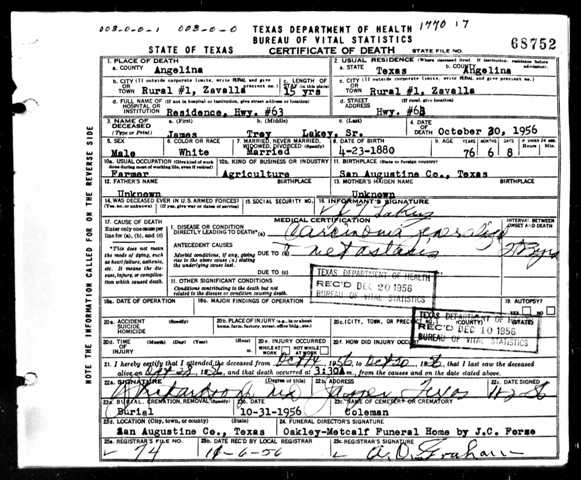 003-0-0-1 003-0-0 TEXAS DEPARTMENT OF HEALTH 1770 17
BUREAU OF VITAL STATISTICS
STATE OF TEXAS CERTIFICATE OF DEATH STATE FILE NO. 68752
1. PLACE OF DEATH 2. USUAL RESIDENCE
a. COUNTY Angelina a. STATE Texas b. COUNTY Angelina
b. CITY OR TOWN Rural #1, Zavalla c. LENGTH OF STAY 15 yrs c. CITY OR TOWN Rural #1, Zavalla
d. FULL NAME OF HOSPITAL OR INSTITUTION Residence, Hwy. #63 d. STREET ADDRESS Hwy. #63
3. NAME OF DECEASED (Type or Print) a. (First) James b. (Middle) Troy c. (Last) Lakey, Sr. 4. DATE OF DEATH October 30, 1956
5. SEX Male 6. COLOR OR RACE White 7. MARRIED, NEVER MARRIED, WIDOWED, DIVORCED Married 8. DATE OF BIRTH 4-23-1880 9. AGE 76 6 8
10a. USUAL OCCUPATION Farmer 10b. KIND OF BUSINESS OR INDUSTRY Agriculture 11. BIRTHPLACE (State or foreign country) San Augustine Co., Texas
12. FATHER'S NAME Unknown 13. MOTHER'S MAIDEN NAME Unknown
14. WAS DECEASED EVER IN U.S. ARMED FORCES? 15. SOCIAL SECURITY NO. 16. INFORMANT'S SIGNATURE
17. CAUSE OF DEATH MEDICAL CERTIFICATION INTERVAL BETWEEN ONSET AND DEATH
Enter only one cause per line for (a), (b), and (c) I. DISEASE OR CONDITION DIRECTLY LEADING TO DEATH* (a) Carcinoma
ANTECEDENT CAUSES metastasis
Morbid conditions, if any, giving rise to the above cause (a) stating the underlying cause last.
DUE TO (b)
DUE TO (c)
*This does not mean the mode of dying, such as heart failure, asthenia, etc. It means the disease, injury, or complication which caused death.
11. OTHER SIGNIFICANT CONDITIONS
Conditions contributing to the death but not related to the disease or condition causing death.
TEXAS DEPARTMENT OF HEALTH
REC'D DEC 20 1956
BUREAU OF VITAL STATISTICS
18a. DATE OF OPERATION 18b. MAJOR FINDINGS OF OPERATION 19. AUTOPSY
TEXAS DEPARTMENT OF
REC'D DEC 10 1956
BUREAU OF VITAL STATISTICS
20a. ACCIDENT SUICIDE HOMICIDE (Specify) 20b. PLACE OF INJURY 20c. (CITY, TOWN, OR PRECINCT NO.) (COUNTY) (STATE)
20d. TIME OF INJURY 20e. INJURY OCCURRED WHILE AT WORK NOT WHILE AT WORK 20f. HOW DID INJURY OCCUR
21. I hereby certify that I attended the deceased from 1956 to that I last saw the deceased
alive on and that death occurred at 3:30A m., from the causes and on the date stated above.
22a. SIGNATURE (Degree or title) 22b. ADDRESS Texas 22c. DATE SIGNED
23a. BURIAL, CREMATION, REMOVAL (Specify) Burial 23b. DATE 10-31-1956 23c. NAME OF CEMETERY OR CREMATORY Coleman
23d. LOCATION (City, town, or county) (State) San Augustine Co., Texas 24. FUNERAL DIRECTOR'S SIGNATURE Oakley-Metcalf Funeral Home by J.C. Forse
25a. REGISTRAR'S FILE NO. 74 25b. DATE REC'D BY LOCAL REGISTRAR 11-6-56 25c. REGISTRAR'S SIGNATURE
NOTE THE INFORMATION CALLED FOR ON THE REVERSE SIDE